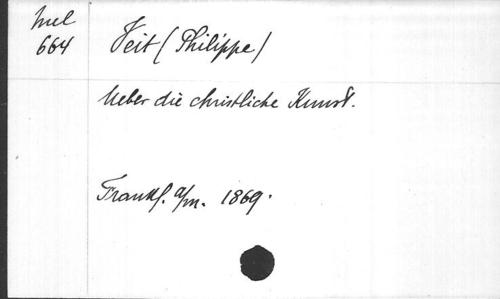 Mel
664
Veit (Philippe)
Ueber die christliche Kunst.
Frankf. a/m. 1869.